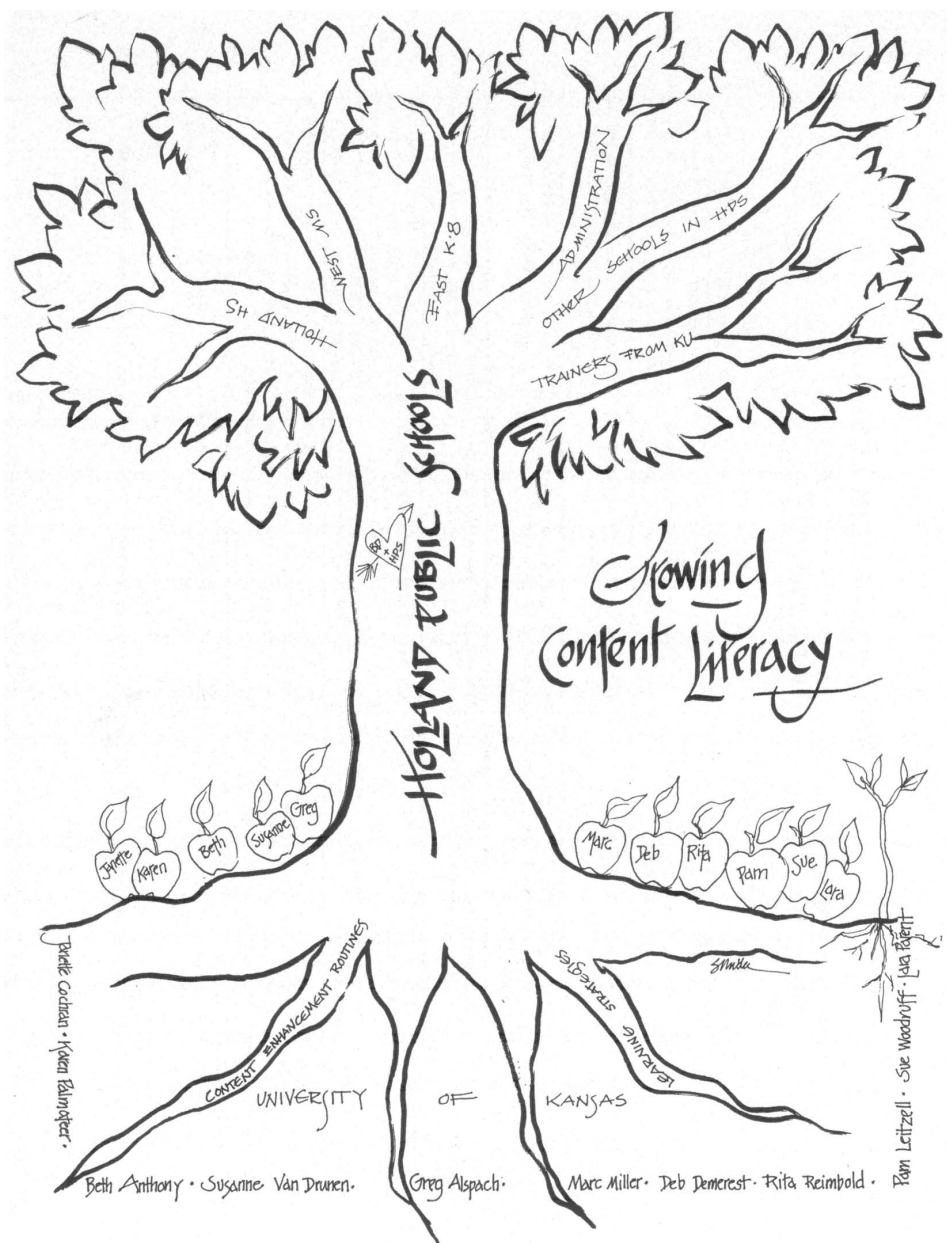 HOLLAND HS
WEST MS
EAST K-8
ADMINISTRATION
OTHER SCHOOLS IN HPS
TRAINERS FROM KU
HOLLAND PUBLIC SCHOOLS
BD + HPS
Growing
Content Literacy
Janette
Karen
Beth
Susanne
Greg
Marc
Deb
Rita
Pam
Sue
Lara
CONTENT ENHANCEMENT ROUTINES
LEARNING STRATEGIES
UNIVERSITY OF KANSAS
Janette Cochran · Karen Palmateer ·
Beth Anthony · Susanne Van Drunen · Greg Alspach · Marc Miller · Deb Demerest · Rita Reimbold ·
Pam Leitzell · Sue Woodruff ·